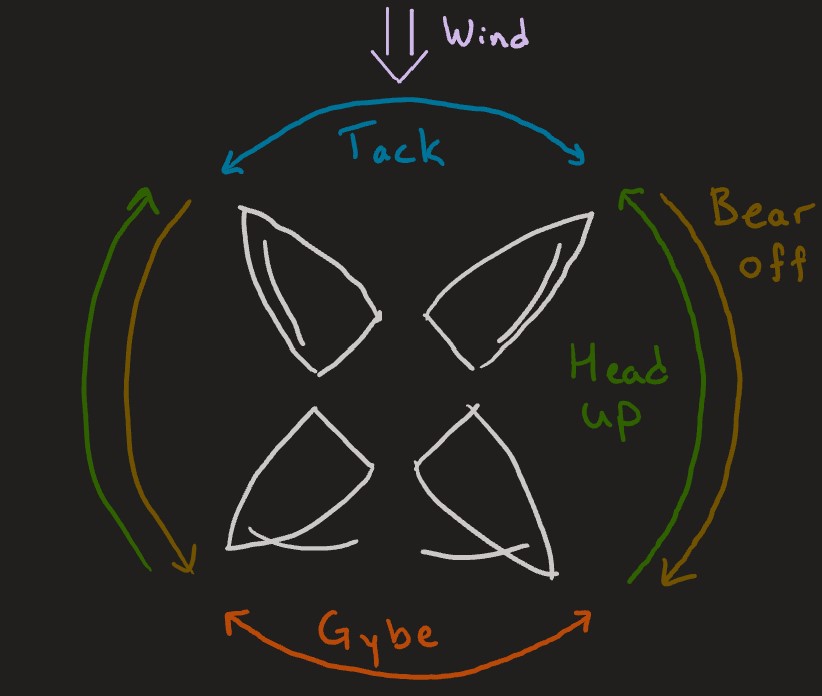 Wind
Tack
Bear
off
Head
up
Gybe